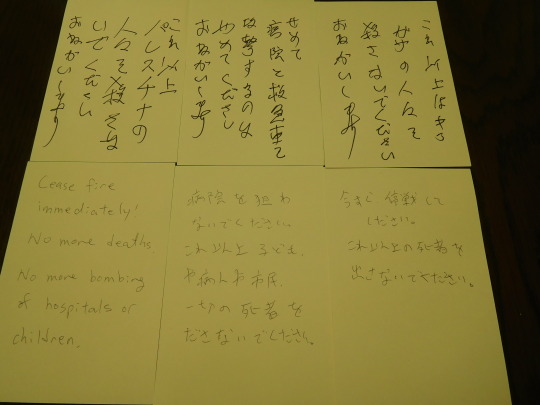 これ以上は
ガザの人々を
殺さないでください
おねがいします
せめて
病院と救急車を
攻撃するのは
やめてください
おねがいします
これ以上
パレスチナの
人々を殺さな
いでください
おねがいします
Cease fire
immediately!
No more deaths.
No more bombing
of hospitals or
children.
病院を狙わ
ないでください。
これ以上子ども、
や病人や市民、
一切の死者を
ださないでください。
今すぐ停戦して
ください。
これ以上の死者を
出さないでください。